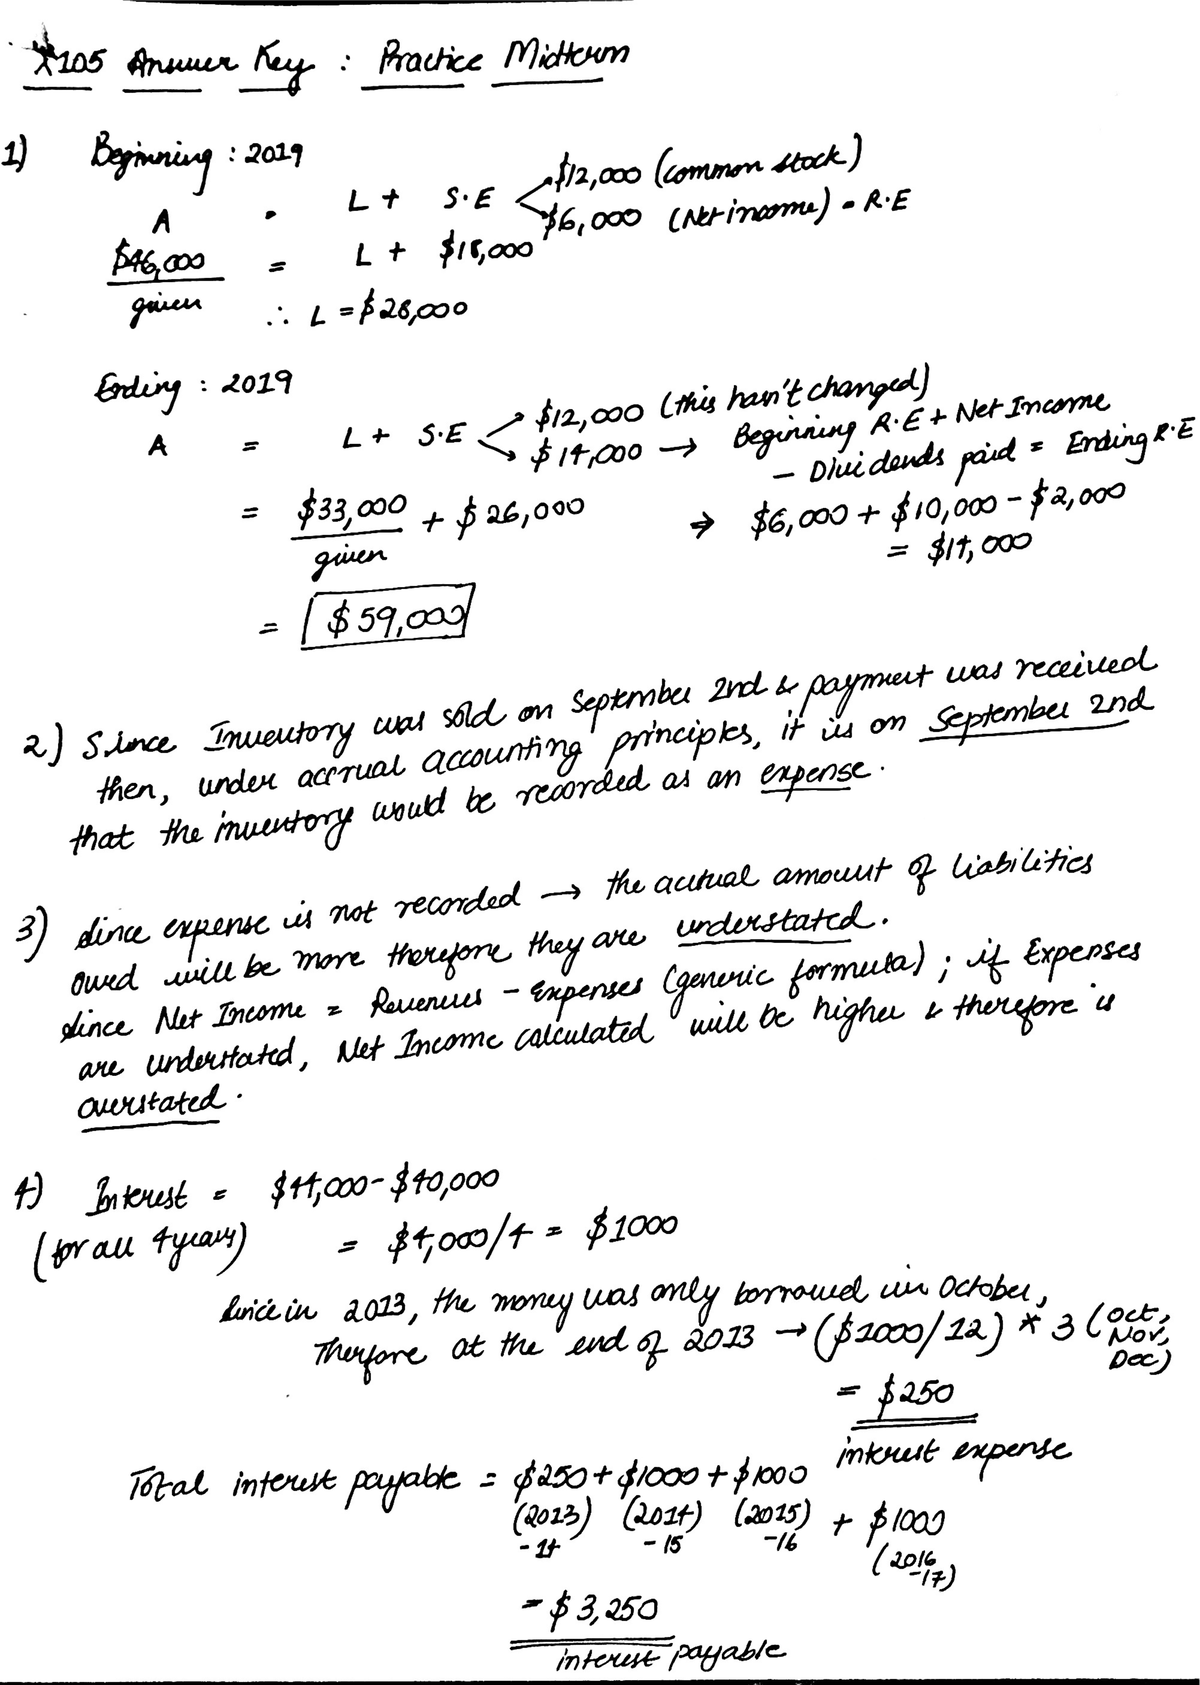 X105 Answer Key : Practice Midterm
1) Beginning : 2019
A = L + S.E $12,000 (common stock)
$6,000 (Net income) = R.E
$46,000 = L + $18,000
given ∴ L = $28,000
Ending : 2019
A = L + S.E $12,000 (this hasn't changed)
$14,000 → Beginning R.E + Net Income
- Dividends paid = Ending R.E
= $33,000 + $26,000 → $6,000 + $10,000 - $2,000
given = $14,000
= $59,000
2) Since Inventory was sold on September 2nd & payment was received
then, under accrual accounting principles, it is on September 2nd
that the inventory would be recorded as an expense.
3) Since expense is not recorded → the actual amount of liabilities
owed will be more therefore they are understated.
Since Net Income = Revenues - Expenses (generic formula) ; if Expenses
are understated, Net Income calculated will be higher & therefore is
overstated.
4) Interest = $44,000 - $40,000
(for all 4 years) = $4,000/4 = $1000
Since in 2013, the money was only borrowed in October,
Therfore at the end of 2013 → ($1000/12) * 3 (Oct, Nov, Dec)
= $250
interest expense
Total interest payable = $250 + $1000 + $1000
(2013) (2014) (2015) + $1000
-14 -15 -16 (2016
-17)
= $3,250
interest payable